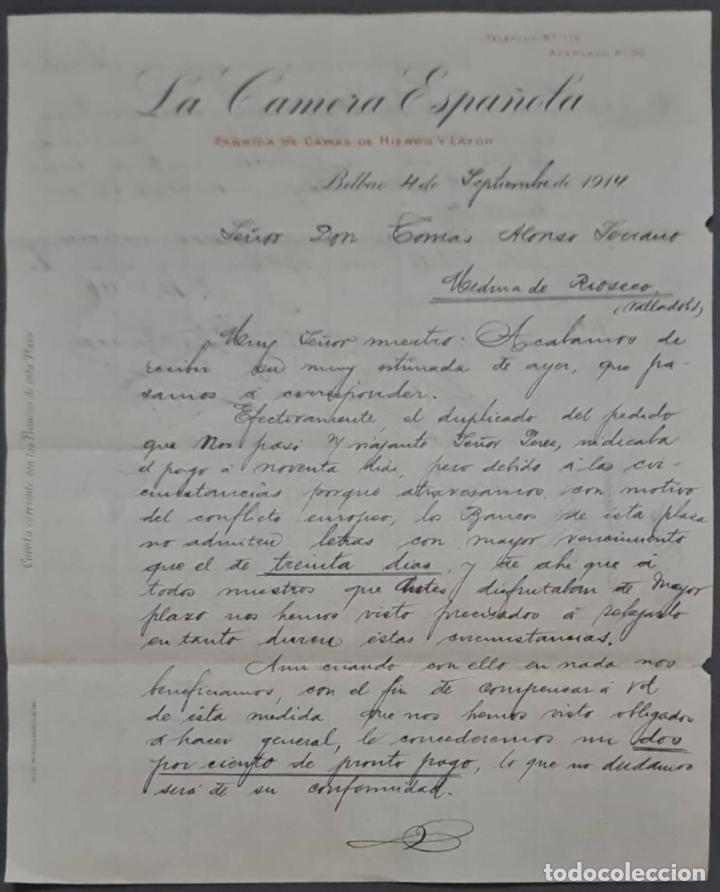 TELÉFONO Nº 1116
APARTADO Nº 30
La Camera Española
FABRICA DE CAMAS DE HIERRO Y LATON
Bilbao 4 de Septiembre de 1914
Señor Don Tomás Alonso Socano
Medina de Rioseco
(Valladolid)
Muy Señor nuestro: Acabamos de
recibir su muy estimada de ayer, que pa-
samos á corresponder.
Efectivamente, el duplicado del pedido
que nos pasó n/ viajante Señor Perez, indicaba
el pago á noventa dias, pero debido á las cir-
cunstancias porque atravesamos, con motivo
del conflicto europeo, los Bancos de esta plaza
no admiten letras con mayor vencimiento
que el de treinta dias, y de ahi que á
todos nuestros que antes disfrutaban de mayor
plazo nos hemos visto precisados á rebajarlo
en tanto duren estas circunstancias.
Aun cuando con ello en nada nos
beneficiamos, con el fin de compensar á Vd
de esta medida que nos hemos visto obligados
á hacer general, le concederemos un dos
por ciento de pronto pago, lo que no dudamos
será de su conformidad.
Cuenta corriente con los Bancos de esta Plaza
todocoleccion.net